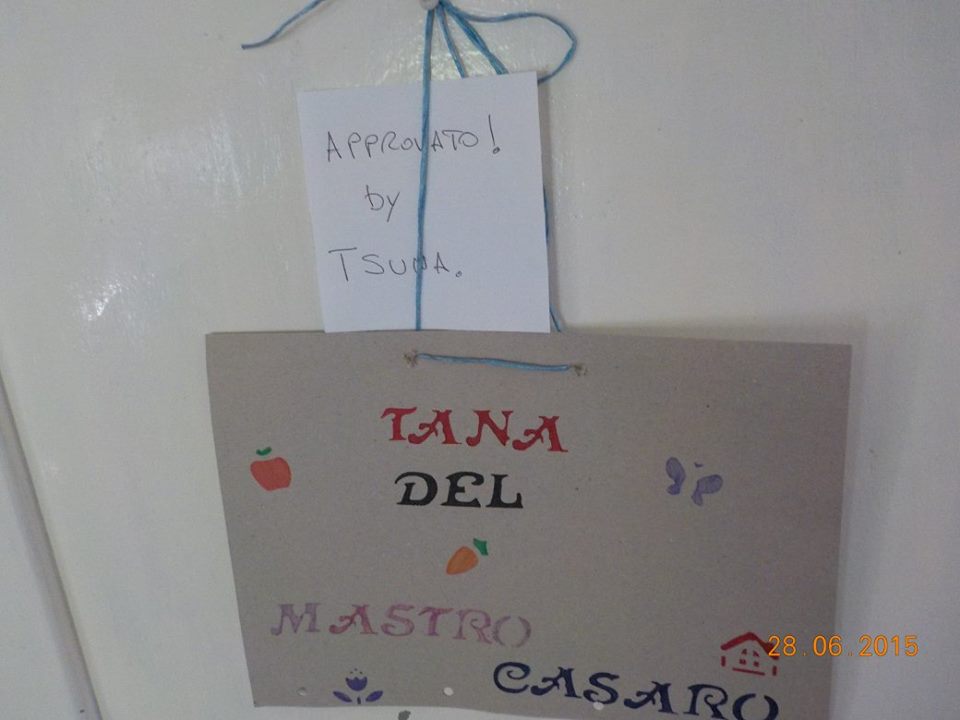 APPROVATO!
by
TSUNA.
TANA
DEL
MASTRO
CASARO
28.06.2015